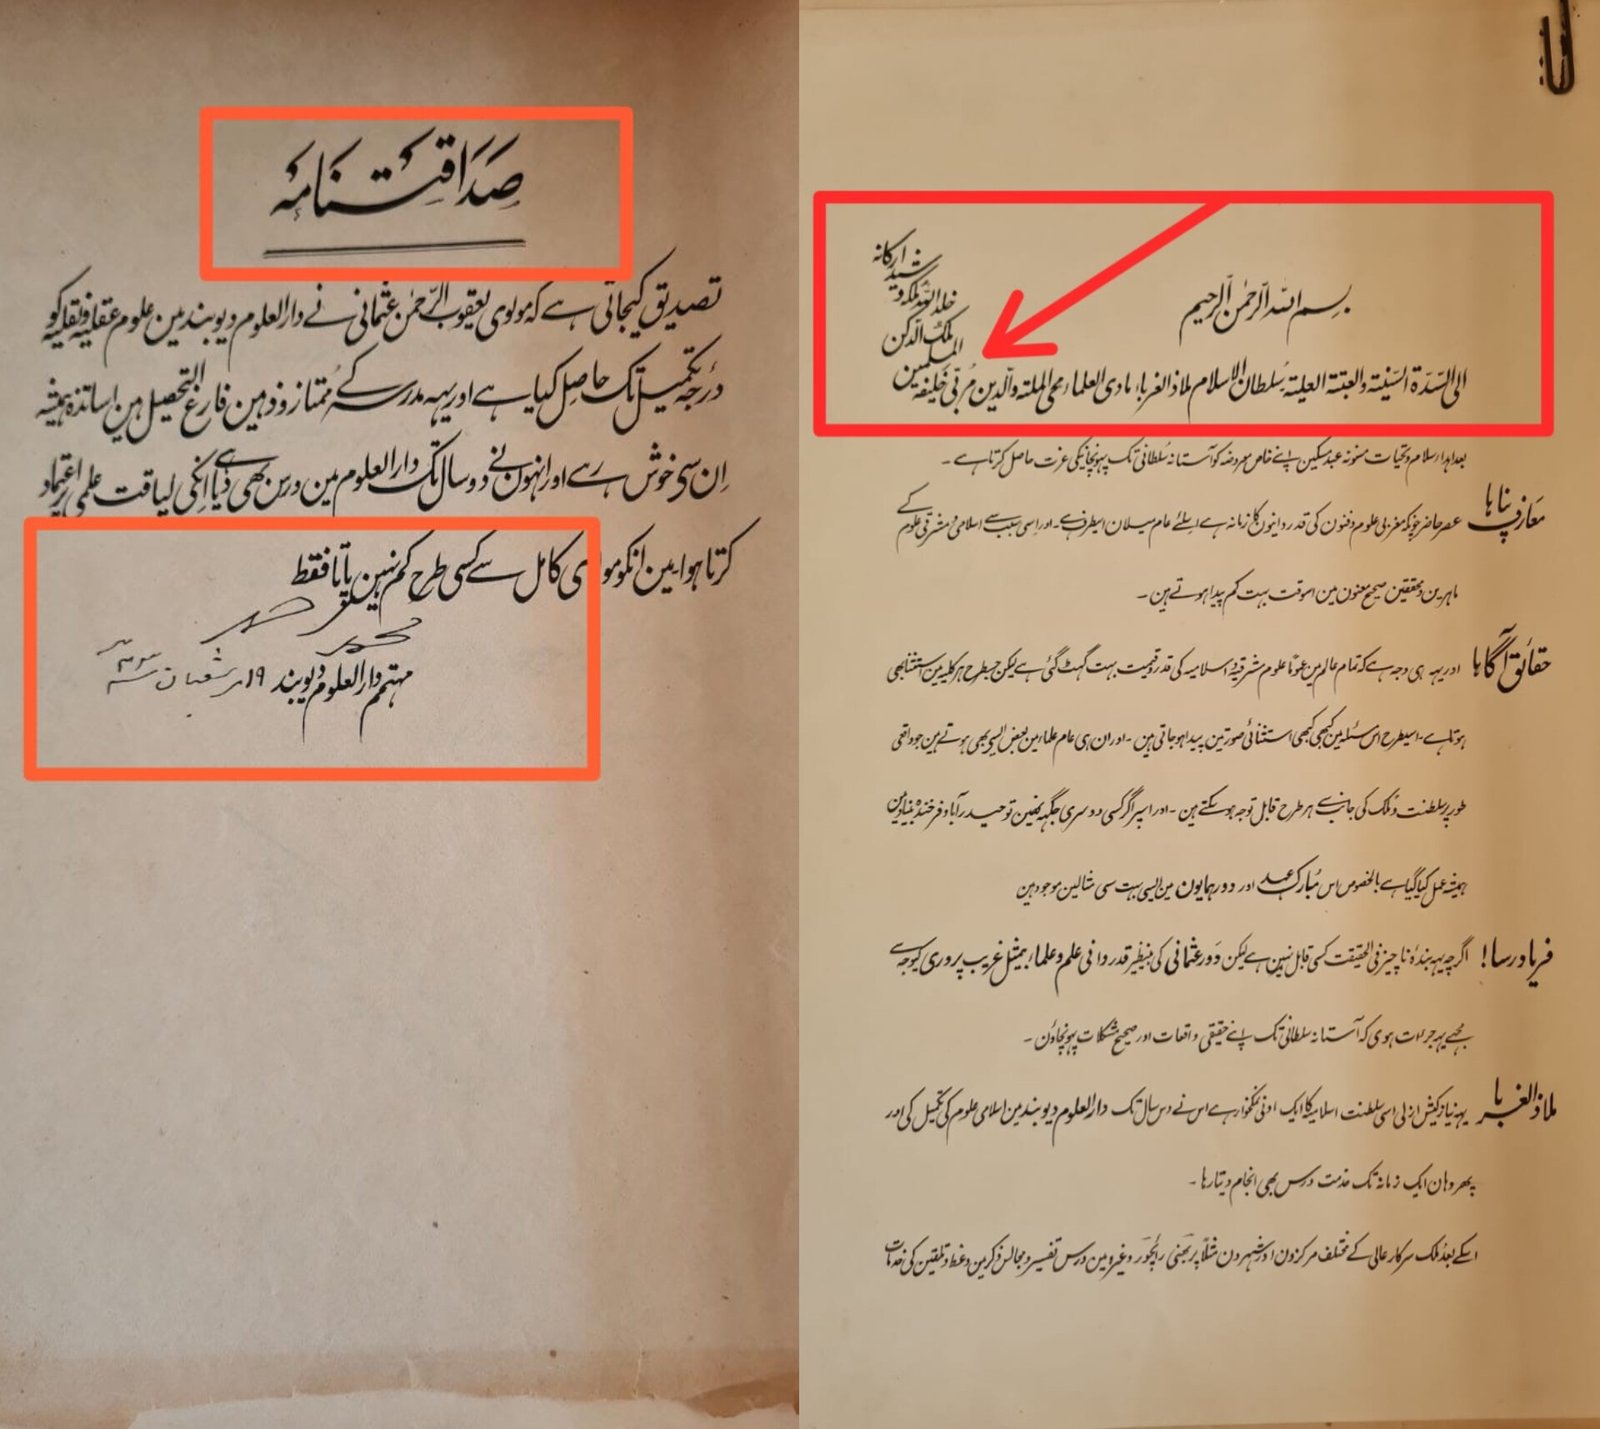 صداقتنامہ
تصدیق کیجاتی ہے کہ مولوی یعقوب الرحمٰن عثمانی نے دار العلوم دیوبند مین علوم عقلیہ و نقلیہ کو
درجہ تکمیل تک حاصل کیا ہے اور یہہ مدرسہ کے ممتاز و ذہین فارغ التحصیل ہین اساتذہ ہمیشہ
اِن سی خوش رہے اور انہون نے دو سال تک دار العلوم مین درس بھی دیا ہے انکی لیاقت علمی پر اعتماد
کرتا ہوا مین انکو مولوی کامل سے کسی طرح کم نہین پاتا فقط
محمد
مہتمم دار العلوم دیوبند ۱۹ شعبان
بسم اللہ الرحمٰن الرحیم
الی السّدۃ السّنیّۃ والعتبۃ العلیّۃ سُلطان الاسلام ملاذ الغرباء ہادی العلماء محی الملۃ والّدین مُربّی خلیفۃ
المسلمین
ملک الدکن
خلد اللہ ملکہ و
شید ارکانہ
بعد اہداء سلام و تحیات مسنونہ عبد مسکین اپنے خاص معروضہ کو آستانہ سُلطانی تک پہونچانیکی عزت حاصل کرتا ہے ۔
معارف پناہا عصر حاضر چونکہ مغربی علوم و فنون کی قدر دانیون کا زمانہ ہے اسلئے عام میلان اسیطرف ہے ۔ اور اسی سبب سے اسلامی و مشرقی علوم کے
ماہرین و محققین صحیح معنون مین اسوقت بہت کم پیدا ہوتے ہین ۔
حقائق آگاہا اور یہہ ہی وجہ ہے کہ تمام عالم مین عموماً علوم شرقیہ اسلامیہ کی قدر و قیمت بہت گہٹ گئی ہے لیکن جسطرح ہر کلیہ مین استثنا بھی
ہوتا ہے ۔ اسیطرح اس مسئلہ مین کبھی کبھی استثنائی صورتین پیدا ہو جاتی ہین ۔ اور ان ہی عام علماء مین بعض ایسی بھی ہوتے ہین جو واقعی
طور پر سلطنت و ملک کی جانب سے ہر طرح قابل توجہ ہو سکتے ہین ۔ اور اسپر اگر کسی دوسری جگہہ نہین تو حیدرآباد فرخندہ بنیاد مین
ہمیشہ عمل کیا گیا ہے بالخصوص اس مُبارک عہد اور دور ہمایون مین ایسی بہت سی مثالین موجود ہین
فریاد رسا! اگرچہ یہہ بندۂ ناچیز فی الحقیقت کسی قابل نہین ہے لیکن دَور عثمانی کی بینظیر قدر دانی علم و علماء بیمثل غریب پروری کیوجہ سے
مجھے یہہ جرات ہوی کہ آستانہ سلطانی تک اپنے حقیقی واقعات اور صحیح مشکلات پہونچاؤن ۔
ملاذ الغربا یہہ نیازکیش ازلی اسی سلطنت اسلامیہ کا ایک ادنی نمکخوار ہے اس نے دس سال تک دار العلوم دیوبند مین اسلامی علوم کی تکمیل کی اور
پھر وہان ایک زمانہ تک خدمت درس بھی انجام دیتا رہا ۔
اسکے بعد ملک سرکار عالی کے مختلف مرکزون اور شہرون مثلاً پربھنی رائچور وغیرہ مین درس تفسیر و مجالس ذکر مین وعظ و تلقین کی خدمات